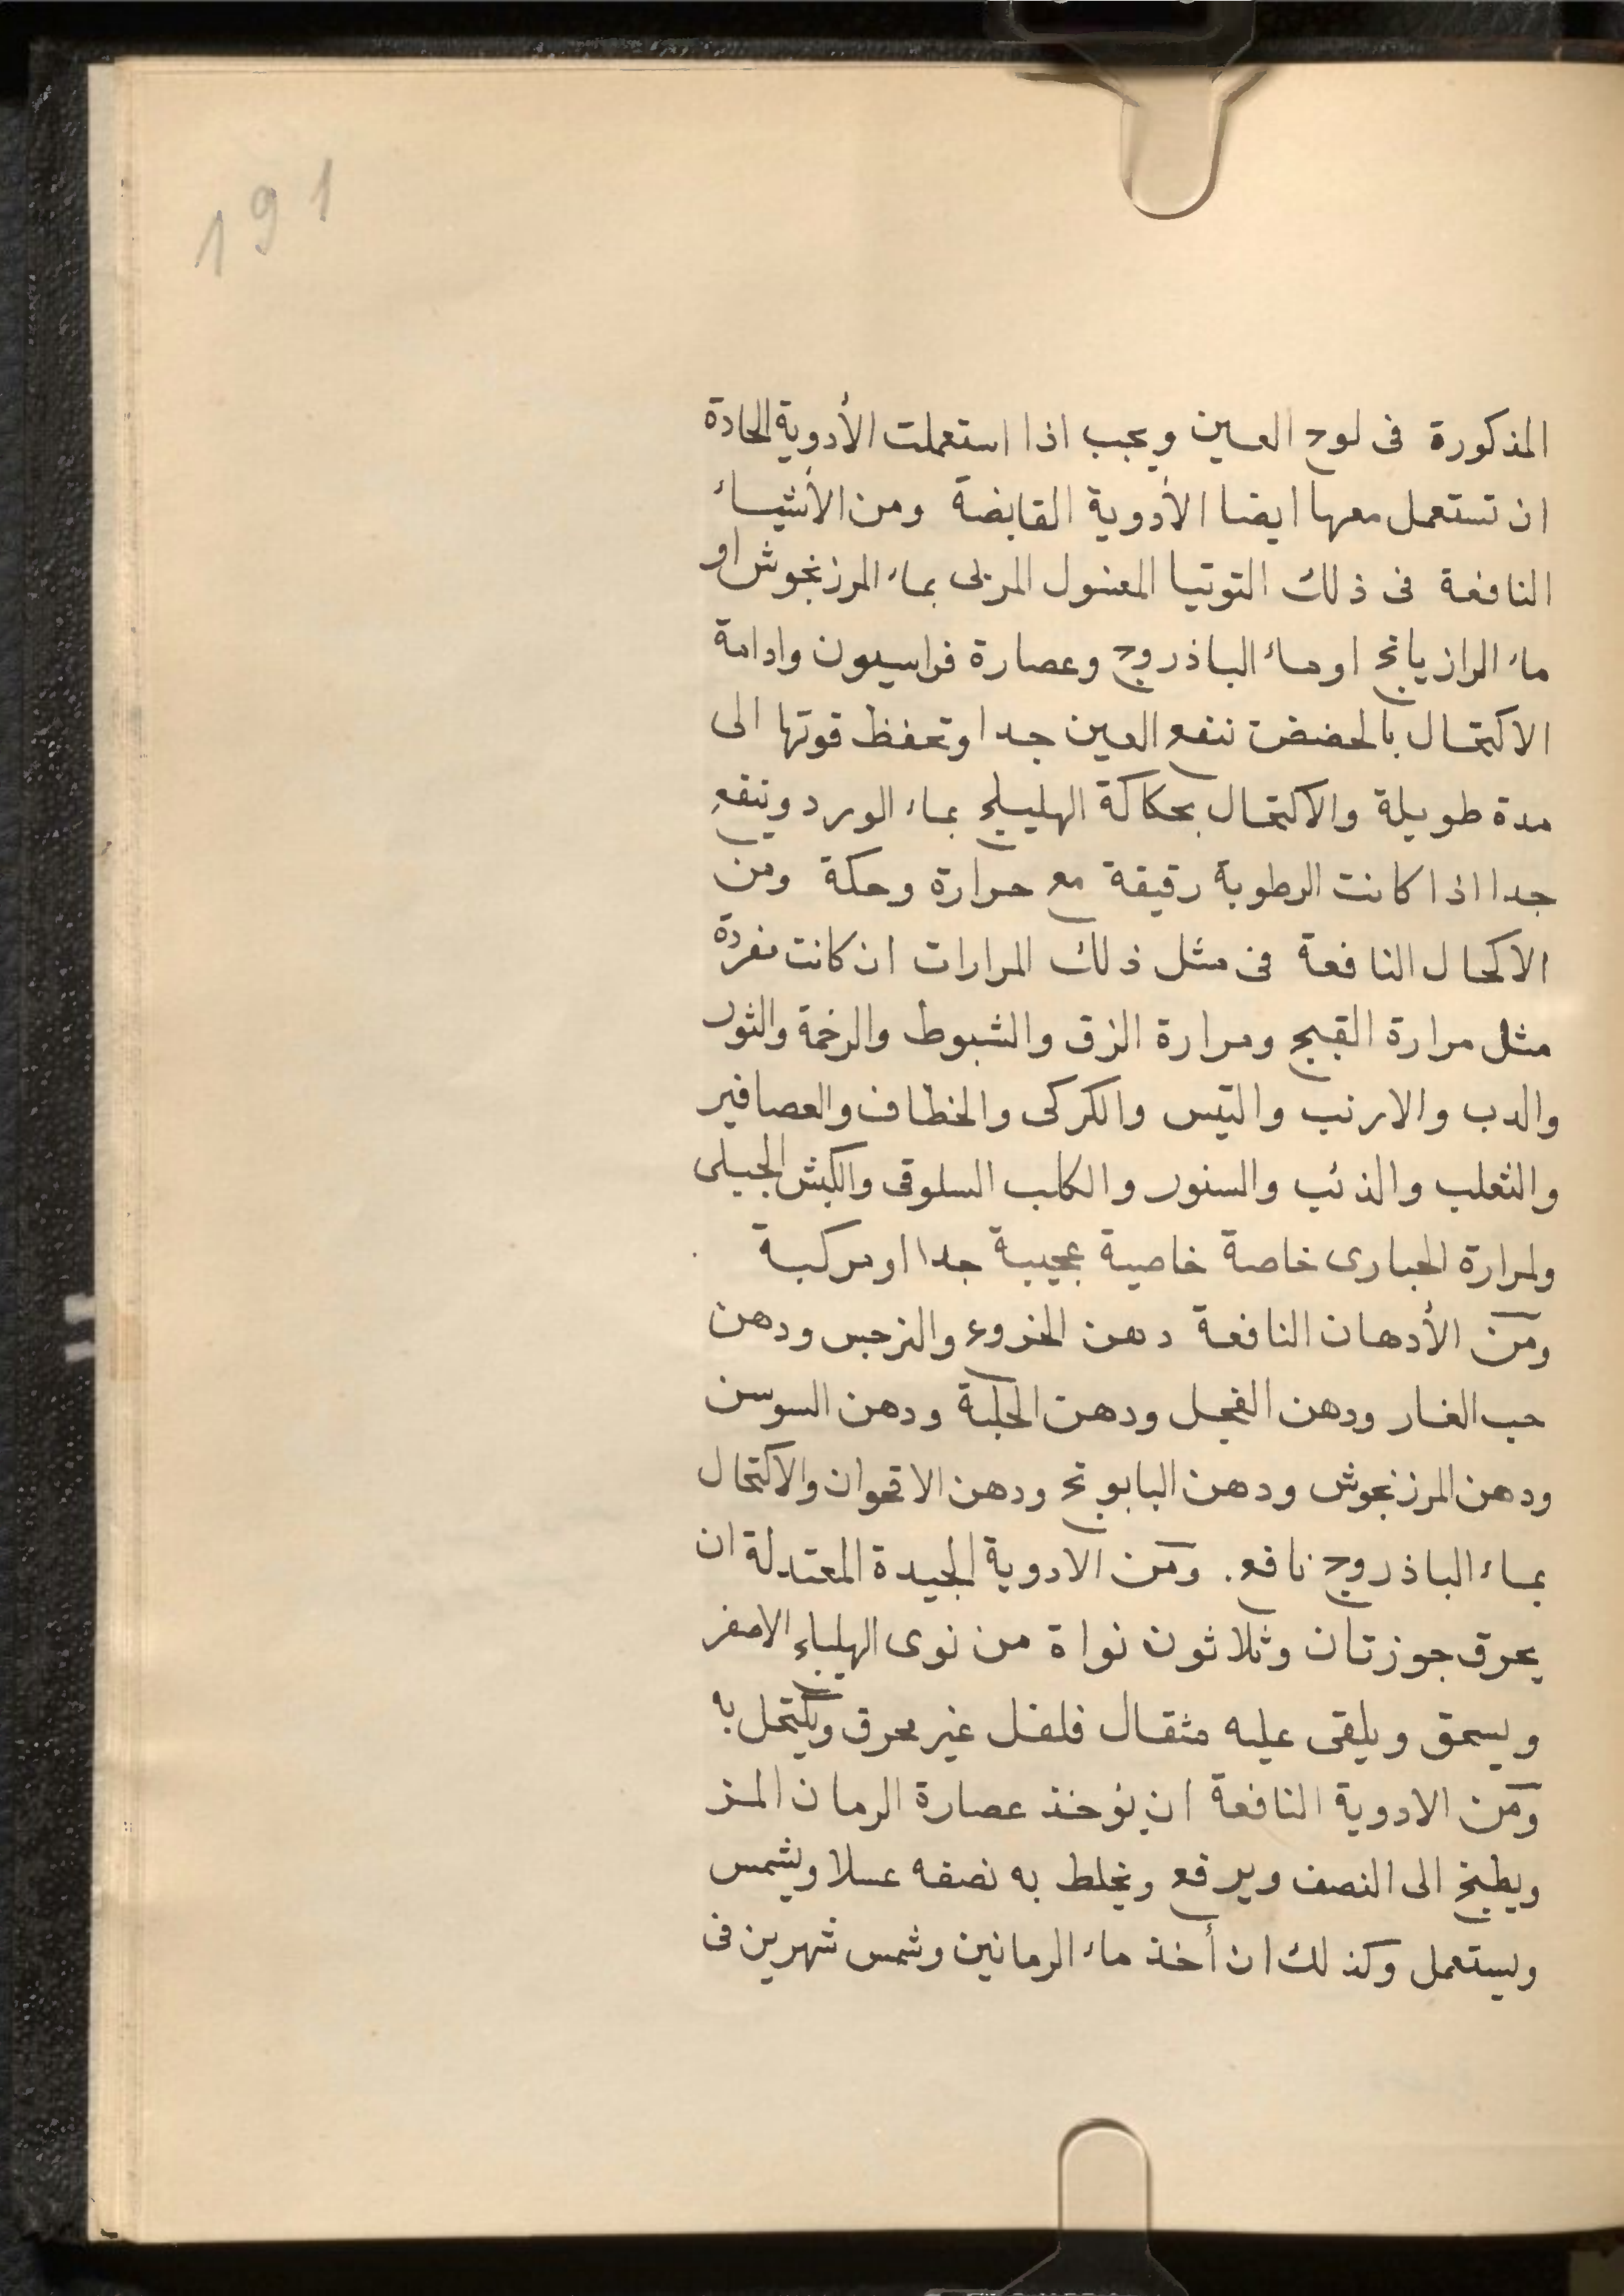 191
المذكورة فى لوح العين ويجب اذا استعملت الأدوية الحادة
ان تستعمل معها ايضا الأدوية القابضة ومن الأشياء
النافعة فى ذلك التوتيا المغسول المربى بماء المرزنجوش او
ماء الرازيانج او ماء الباذروج وعصارة فراسيون وادامة
الاكتحال بالحضض تنفع العين جدا وتحفظ قوتها الى
مدة طويلة والاكتحال بحكاكة الهليلج بماء الورد وينفع
جدا اذا كانت الرطوبة رقيقة مع حرارة وحكة ومن
الاكحال النافعة فى مثل ذلك المرارات ان كانت مفردة
مثل مرارة القبج ومرارة الزق والشبوط والرخمة والثور
والدب والارنب والتيس والكركى والخطاف والعصافير
والثعلب والذئب والسنور والكلب السلوقى والكبش الجبلى
ولمرارة الحبارى خاصة خاصية عجيبة جدا او مركبة
ومن الأدهان النافعة دهن الخروع والنرجس ودهن
حب الغار ودهن الفجل ودهن الحلبة ودهن السوسن
ودهن المرزنجوش ودهن البابونج ودهن الاقحوان والاكتحال
بماء الباذروج نافع. ومن الادوية الجيدة المعتدلة ان
يحرق جوزتان وثلاثون نواة من نوى الهليلج الاصفر
ويسحق ويلقى عليه مثقال فلفل غير محرق ويكتحل به
ومن الادوية النافعة ان يؤخذ عصارة الرمان المز
ويطبخ الى النصف ويرفع ويخلط به نصفه عسلا ويشمس
ويستعمل وكذلك ان أخذ ماء الرمانين وشمس شهرين فى